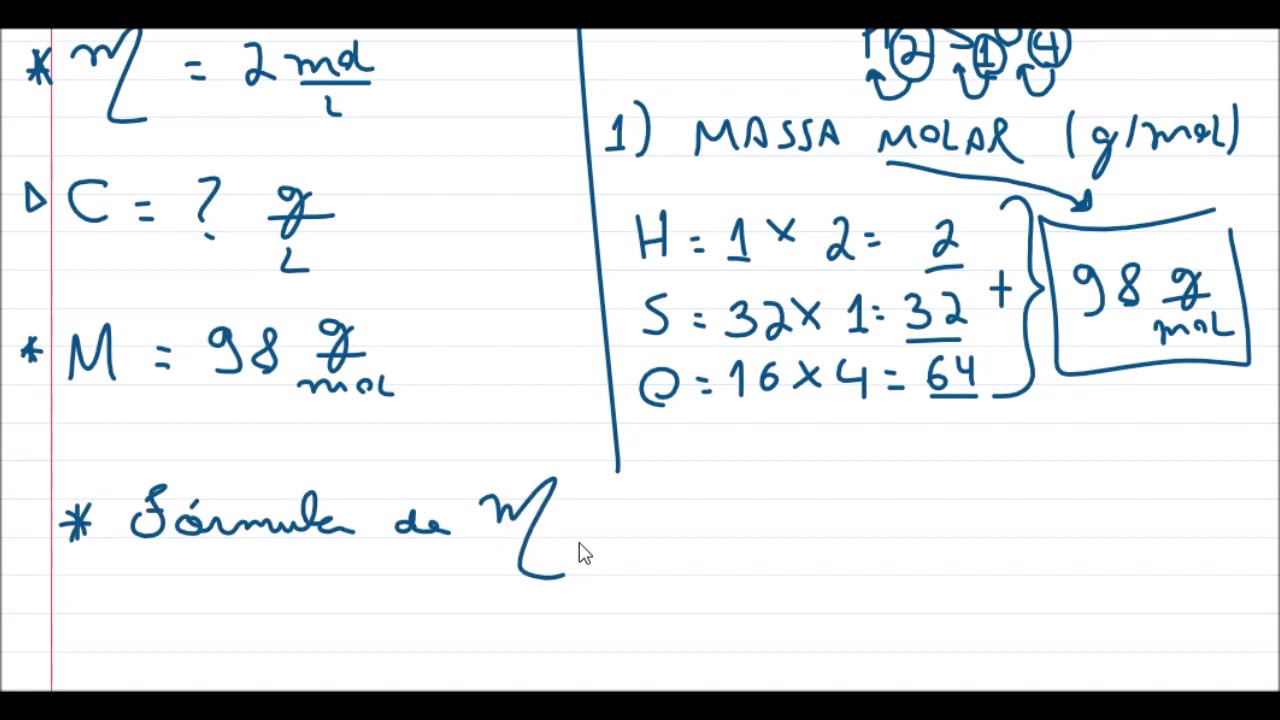 * M = 2 mol/L
▷ C = ? g/L
* M = 98 g/mol
* Fórmula de M
2 1 4
1) MASSA MOLAR (g/mol)
H = 1 × 2 = 2
S = 32 × 1 = 32
O = 16 × 4 = 64
+ } 98 g/mol